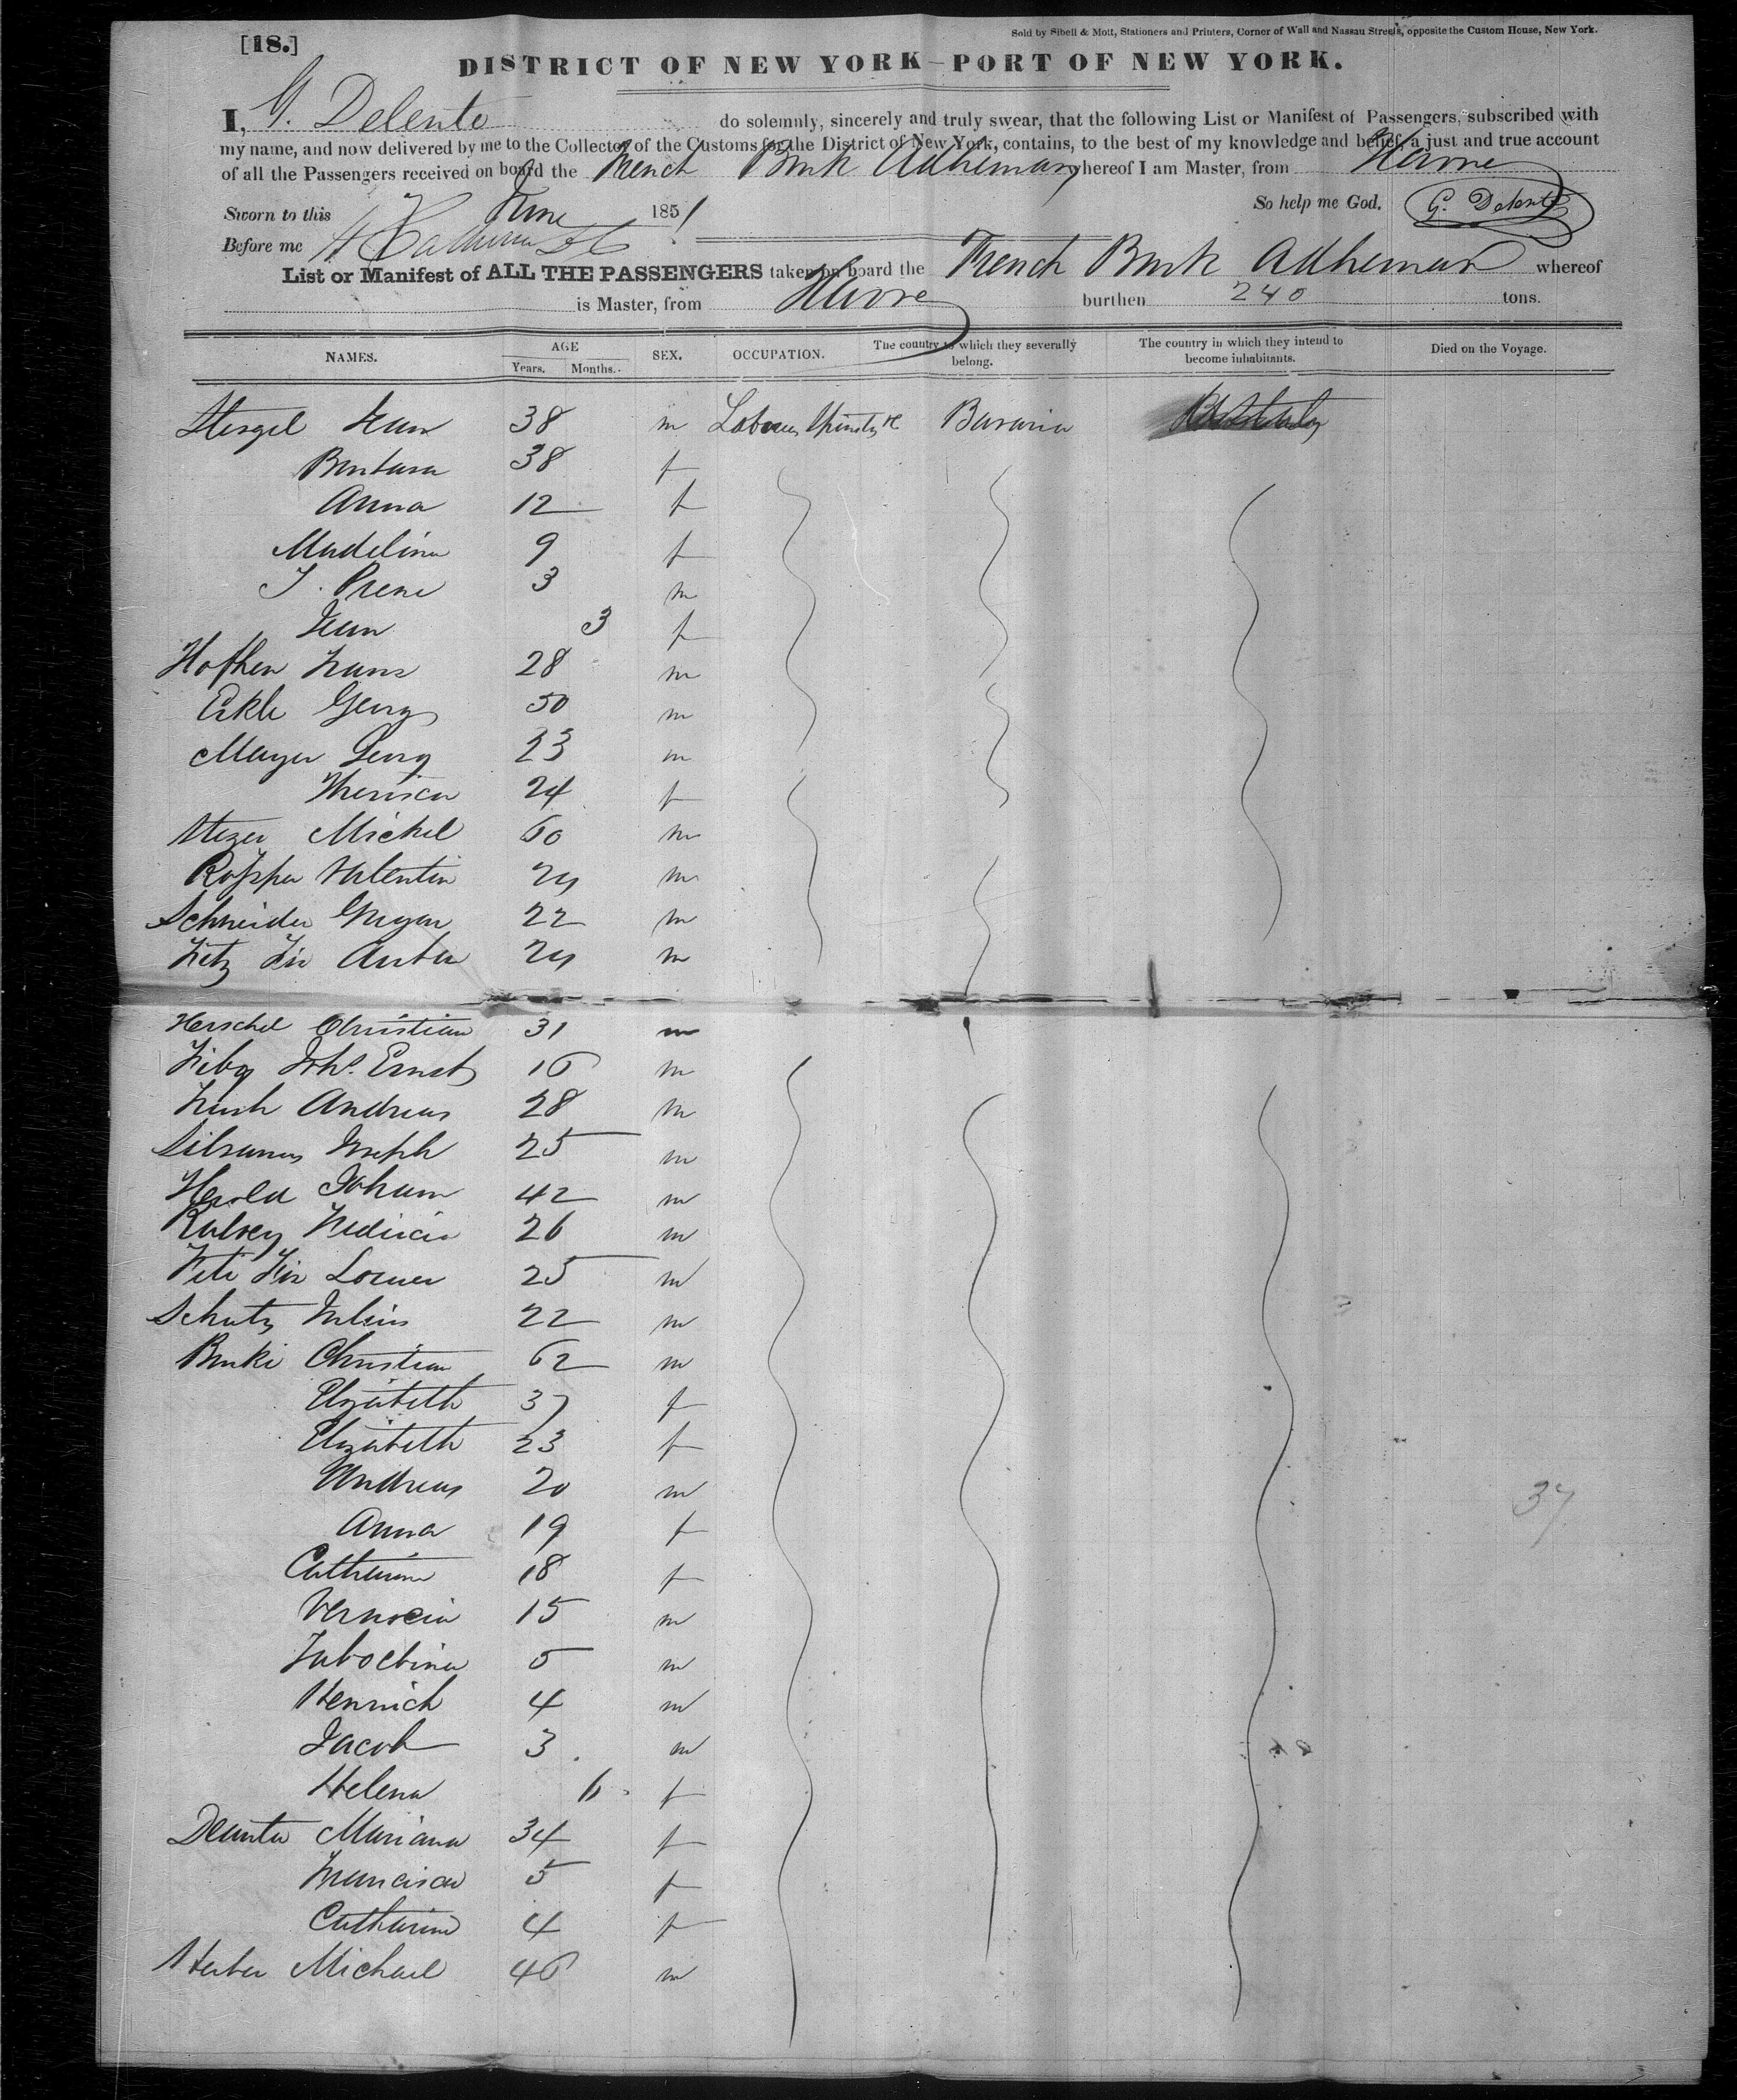 [18.]
Sold by Sibell & Mott, Stationers and Printers, Corner of Wall and Nassau Streets, opposite the Custom House, New York.
DISTRICT OF NEW YORK—PORT OF NEW YORK.
I, G. Delento do solemnly, sincerely and truly swear, that the following List or Manifest of Passengers, subscribed with
my name, and now delivered by me to the Collector of the Customs for the District of New York, contains, to the best of my knowledge and belief, a just and true account
of all the Passengers received on board the French Bark Adhemar whereof I am Master, from Havre
Sworn to this June 1851 So help me God. G. Delento
Before me
List or Manifest of ALL THE PASSENGERS taken on board the French Bark Adhemar whereof
is Master, from Havre burthen 240 tons.
NAMES. AGE Years. Months. SEX. OCCUPATION. The country to which they severally belong. The country in which they intend to become inhabitants. Died on the Voyage.
Stengel Jean 38 m Bavaria
Barbara 38 f
Anna 12 f
Madelina 9 f
J. 3 m
Jean 3 f
Franz 28 m
Eckle Georg 50 m
Mayer Georg 23 m
Theresia 24 f
Michel 60 m
Valentin 24 m
Schneider 22 m
Anton 24 m
Herschel Christian 31 m
Joh. Ernst 16 m
Andreas 28 m
Joseph 25 m
Herold Johann 42 m
26 m
25 m
Schutz Julius 22 m
Christian 62 m
Elizabeth 37 f
Elizabeth 23 f
Andreas 20 m
Anna 19 f
Catharina 18 f
15 m
5 m
Henrich 4 m
Jacob 3 m
Helena 6 f
Mariana 34 f
Francisca 5 f
Catharina 4 f
Michael 46 m
37